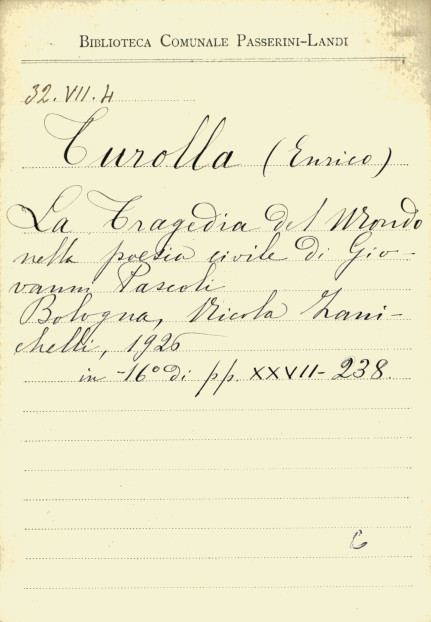 BIBLIOTECA COMUNALE PASSERINI-LANDI
32.VII.4
Turolla (Enrico)
La Tragedia del Mondo
nella poesia civile di Gio-
vanni Pascoli
Bologna, Nicola Zani-
chelli, 1926
in -16° di pp. XXVII-238.
C